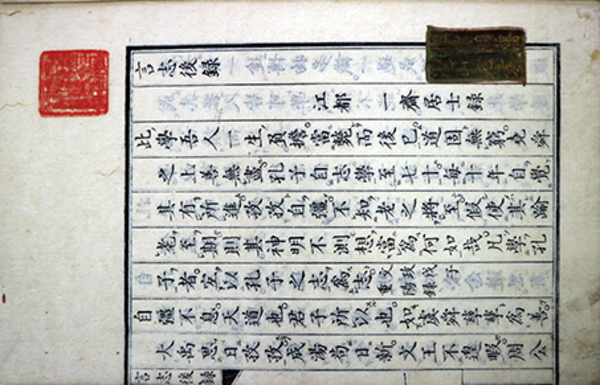 言志後録
江都 一齋居士録
此學吾人一生負擔當斃而後已道固無窮堯舜
之上善無盡孔子自志學至七十毎十年自覺
其有所進孜孜自彊不知老之將至假使其踰
耄至期則其神明不測想當爲何如哉凡學孔
子者宜以孔子之志爲志 文政戊子重陽録
自彊不息天道也君子所以也如虞舜孳孳爲善
大禹思日孜孜成湯苟日新文王不遑暇周公
言志後録